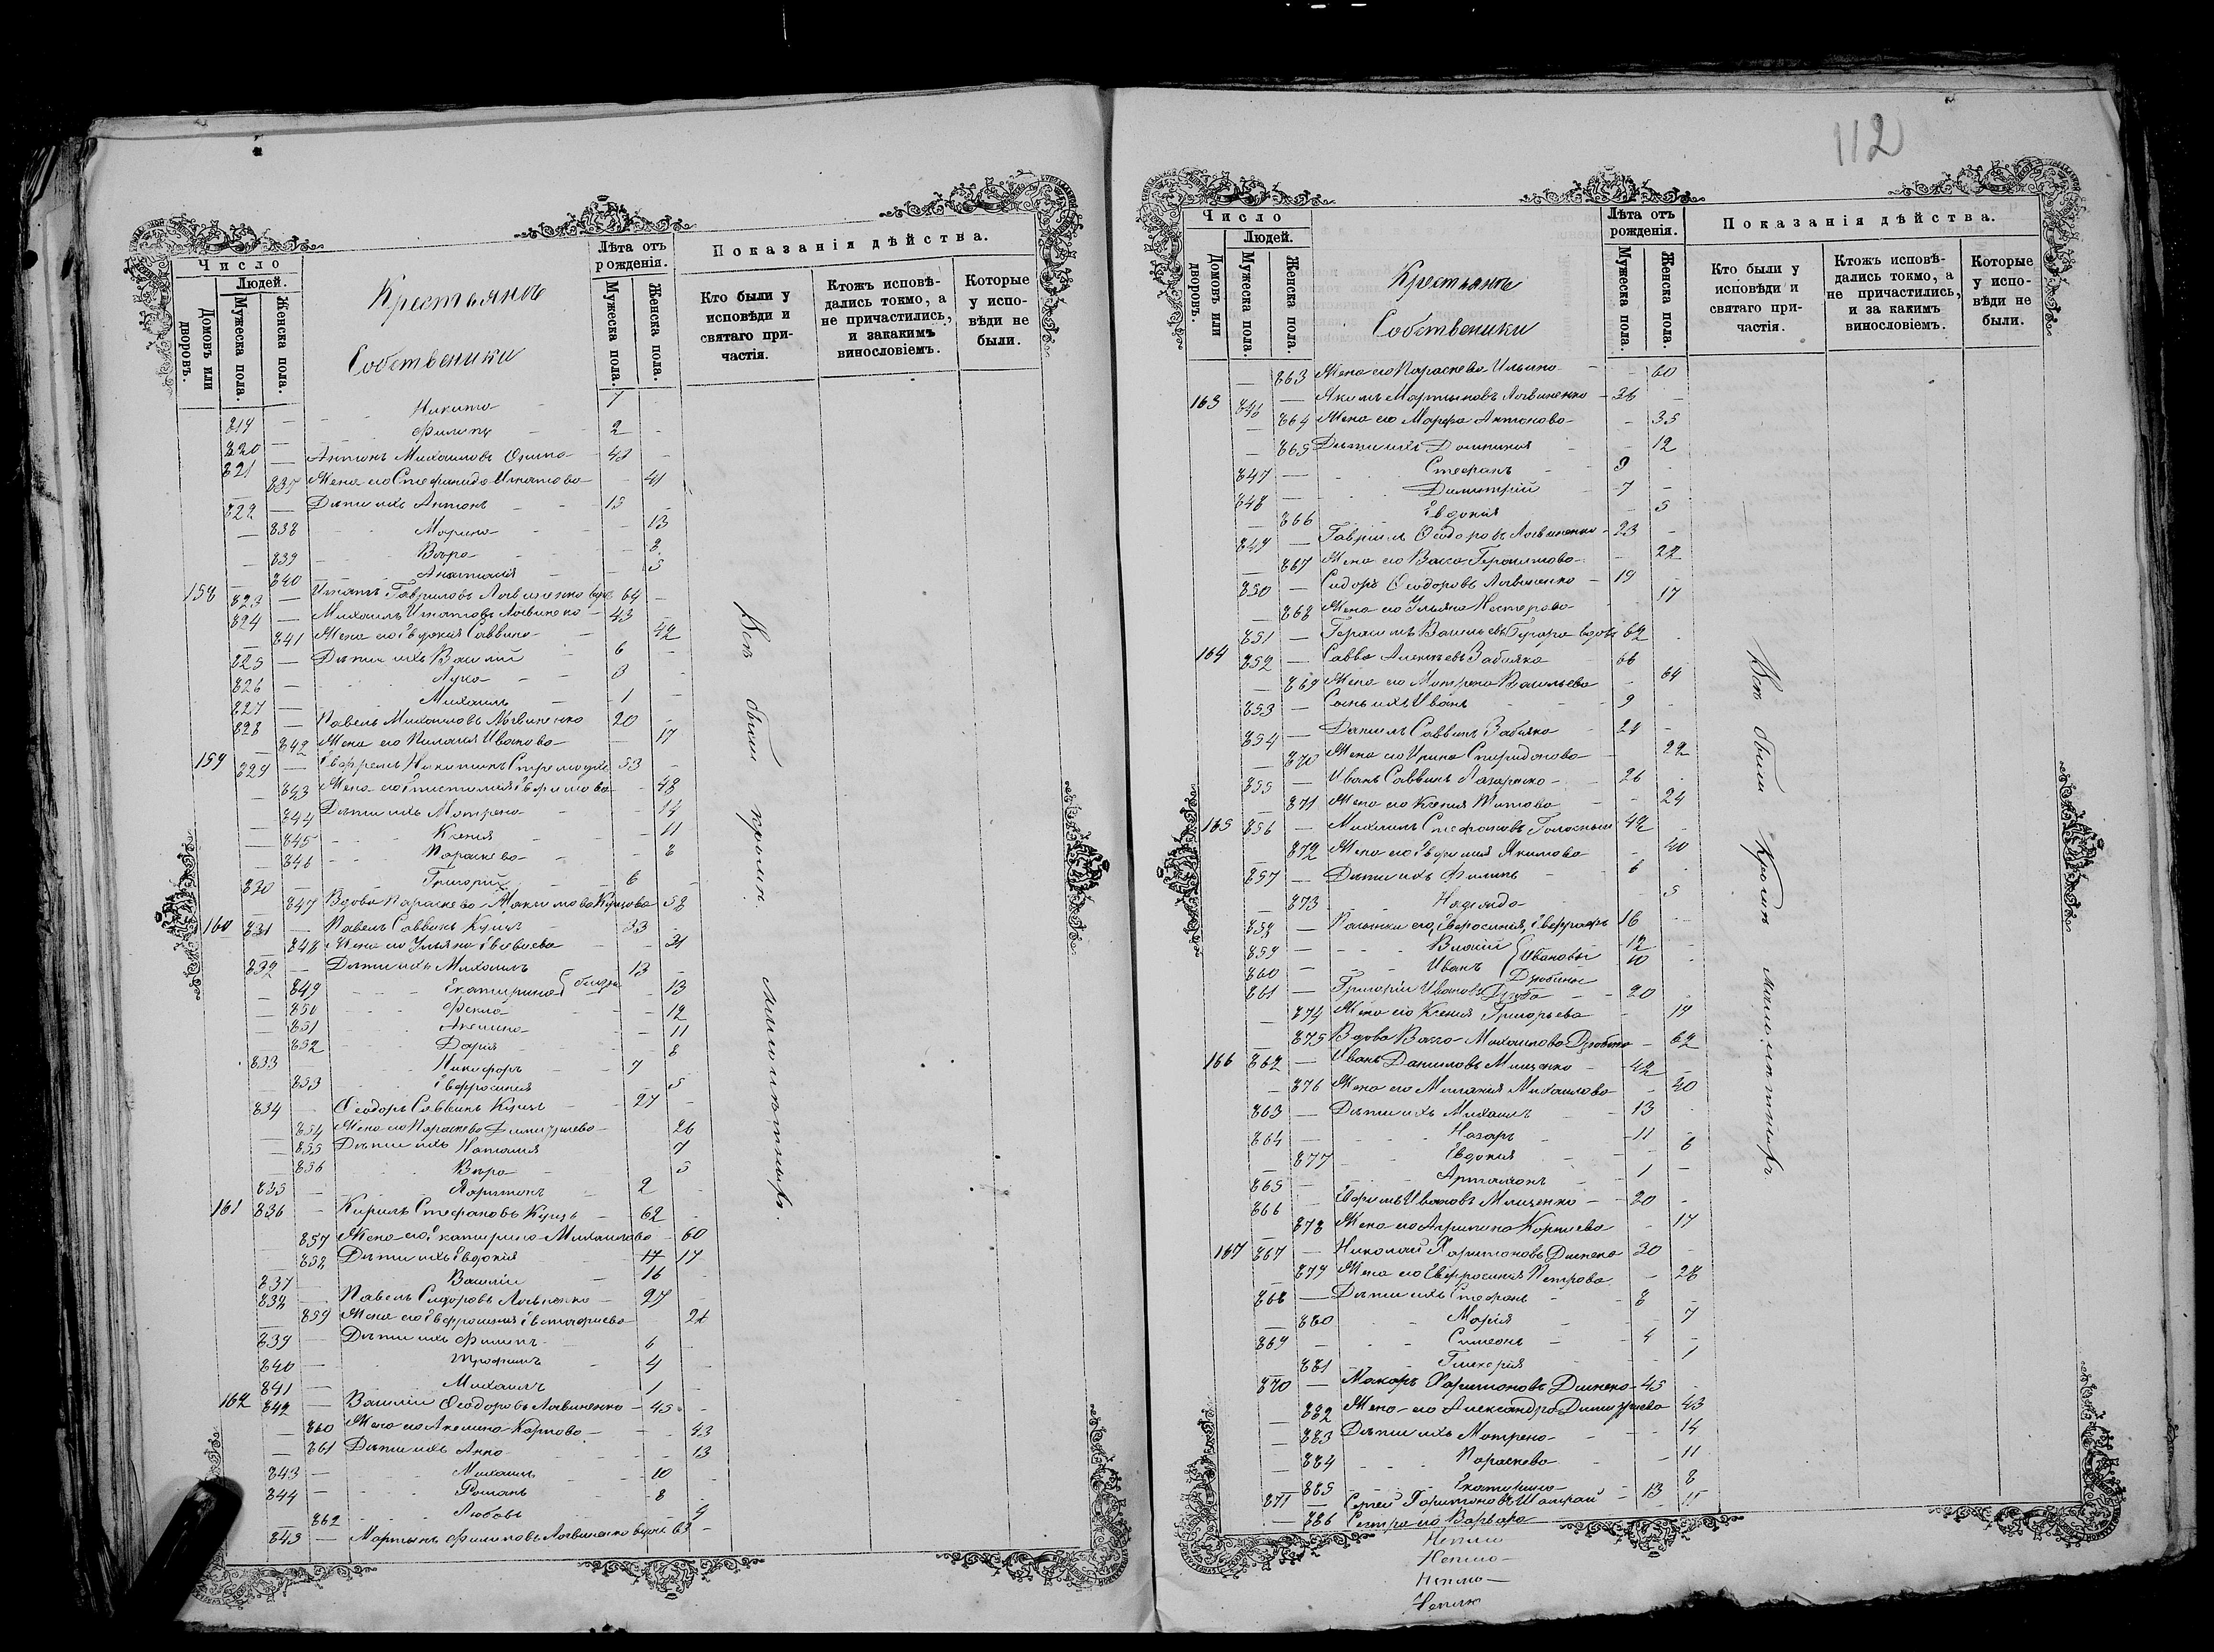 Число
Домовъ или дворовъ.
Людей.
Мужеска пола.
Женска пола.
Крестьяне
Собственики
Лѣта отъ рожденія.
Мужеска пола.
Женска пола.
Показанія дѣйства.
Кто были у исповѣди и святаго причастія.
Ктожъ исповѣдались токмо, а не причастились, и закакимъ винословіемъ.
Которые у исповѣди не были.
819 — Никита 7
820 — Филипъ 2
821 — Антонъ Михаиловъ 42
837 Жена его Стефанида Игнатова 41
822 — Дѣти ихъ Антонъ 15
838 Марина 13
839 Вѣра 8
840 Анастасія 5
158 823 — Игнатъ Гавриловъ Логвиненко вдов 64
824 — Михаилъ Игнатовъ Логвиненко 43
841 Жена его Евдокія Саввина 42
825 — Дѣти ихъ Василій 6
826 — Лука 3
827 — Михаилъ 1
828 — Павелъ Михаиловъ Логвиненко 20
842 Жена его Пелагія Иванова 17
159 829 — Евфремъ Никитинъ 53
843 Жена его 48
844 Дѣти ихъ Матрена 14
845 Ксенія 11
846 Параскева 8
830 — Григорій 6
847 Вдова Параскева Максимова 58
160 831 — Павелъ Саввинъ 33
848 Жена его Ульяна 31
832 — Дѣти ихъ Михаилъ 13
849 Екатерина близн 13
850 Фекла 12
851 Акилина 11
852 Дарія 8
833 Никифоръ 7
853 Евфросинія 5
834 — Ѳеодоръ Саввинъ 27
854 Жена его Параскева Димитріева 26
855 Дѣти ихъ Наталія 7
856 Вѣра 5
835 — Харитонъ 2
161 836 — Кирилъ Стефановъ 62
857 Жена его Екатерина Михаилова 60
858 Дѣти ихъ Евдокія 17
837 Василій 16
838 — Павелъ Сидоровъ Логвиненко 27
859 Жена его Евфросинія Евстафіева
839 — Дѣти ихъ Филипъ 6
840 — Трофимъ 4
841 — Михаилъ 1
162 842 — Василій Ѳеодоровъ Логвиненко 45
860 Жена его Акилина Карпова 43
861 Дѣти ихъ Анна 13
843 — Михаилъ 10
844 — Романъ 8
862 Любовь
845 — Мартынъ Филиповъ Логвиненко вдов 63
Всѣ были кромѣ малолѣтныхъ.
112
Число
Домовъ или дворовъ.
Людей.
Мужеска пола.
Женска пола.
Крестьяне
Собственики
Лѣта отъ рожденія.
Мужеска пола.
Женска пола.
Показанія дѣйства.
Кто были у исповѣди и святаго причастія.
Ктожъ исповѣдались токмо, а не причастились, и за какимъ винословіемъ.
Которые у исповѣди не были.
863 Жена его Параскева Ильина 60
163 846 — Якимъ Мартыновъ Логвиненко 36
864 Жена его Марфа Антонова 35
865 Дѣти ихъ Домникія 12
847 — Стефанъ 9
848 — Димитрій 7
866 Евдокія 5
849 — Гавріилъ Ѳеодоровъ Логвиненко 23
867 Жена его Васса Герасимова 22
850 — Сидоръ Ѳеодоровъ Логвиненко 19
868 Жена его Ульяна Нестерова 17
851 — Герасимъ Васильевъ вдовъ 62
164 852 — Савва Алексѣевъ Забияка 66
869 Жена его Матрена Васильева 64
853 — Сынъ ихъ Иванъ 9
854 — Даніилъ Саввинъ Забияка
870 Жена его Ирина Спиридонова 22
855 — Иванъ Саввинъ 26
871 Жена его Ксенія Титова 24
165 856 — Михаилъ Стефановъ 42
872 Жена его Евфимія Якимова 40
857 — Дѣти ихъ Филипъ 6
873 Надежда 5
858 — Евграфъ 16
859 — Василій 12
860 — Иванъ Ивановы 10
Дзюбины
861 — Григорій Ивановъ Дзюба 20
874 Жена его Ксенія Григорьева 19
875 Вдова Васса Михаилова Дзюбина 62
166 862 — Иванъ Даниловъ Мищенко 42
876 Жена его Меланія Михаилова 40
863 — Дѣти ихъ Михаилъ 13
864 — Назаръ 11
877 Евдокія 6
865 — Артамонъ 1
866 — Ефимъ Ивановъ Мищенко 20
878 Жена его Агрипина Корниева 17
167 867 — Николай Харитоновъ 30
879 Жена его Евфросинія Петрова 28
868 — Дѣти ихъ Стефанъ 8
880 Марія 7
869 — Симеонъ 4
881 Гликерія 1
870 — Макаръ Харитоновъ 45
882 Жена его Александра Димитріева 43
883 Дѣти ихъ Матрена 14
884 Параскева 11
885 Екатерина 8
871 — Сергей Харитоновъ 13
886 Сестра его Варвара 15
Всѣ были кромѣ малолѣтныхъ